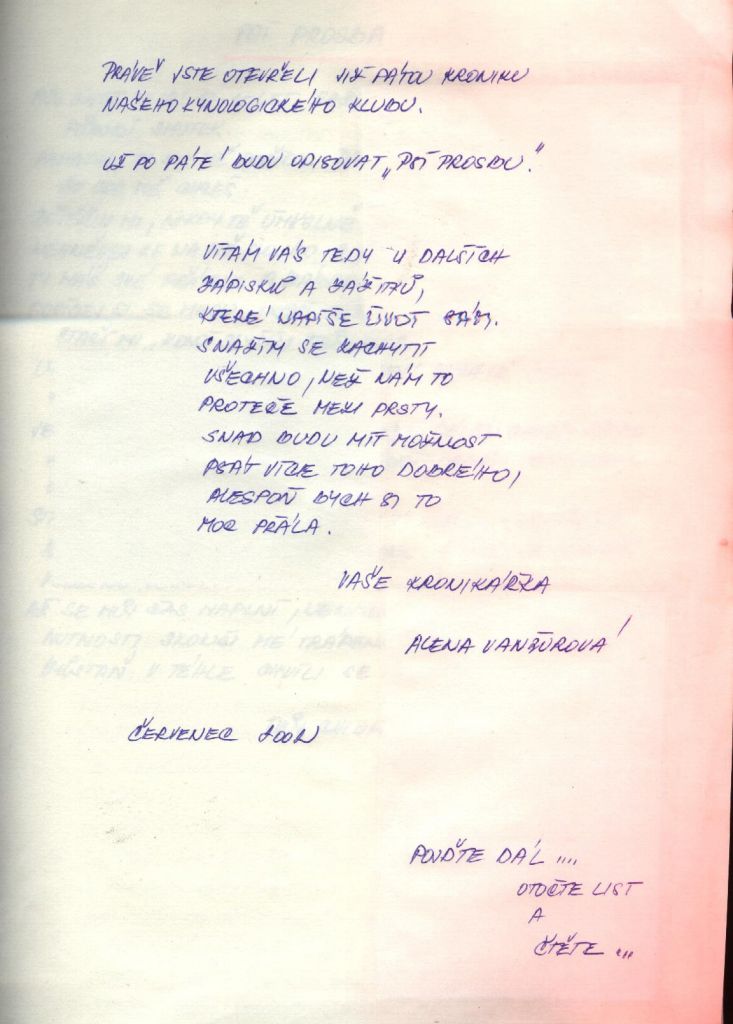 PRÁVĚ JSTE OTEVŘELI JIŽ PÁTOU KRONIKU
NAŠEHO KYNOLOGICKÉHO KLUBU.
UŽ PO PÁTÉ BUDU OPISOVAT „PSÍ PROSBU."
VÍTÁM VÁS TEDY U DALŠÍCH
ZÁPISKŮ A ZÁŽITKŮ,
KTERÉ NAPÍŠE ŽIVOT SÁM.
SNAŽÍM SE ZACHYTIT
VŠECHNO, NEŽ NÁM TO
PROTEČE MEZI PRSTY.
SNAD BUDU MÍT MOŽNOST
PSÁT VÍCE TOHO DOBRÉHO,
ALESPOŇ BYCH SI TO
MOC PŘÁLA.
VAŠE KRONIKÁŘKA
ALENA VANŽUROVÁ
ČERVENEC 2002
POJĎTE DÁL ....
OTOČTE LIST
A
ČTĚTE ...